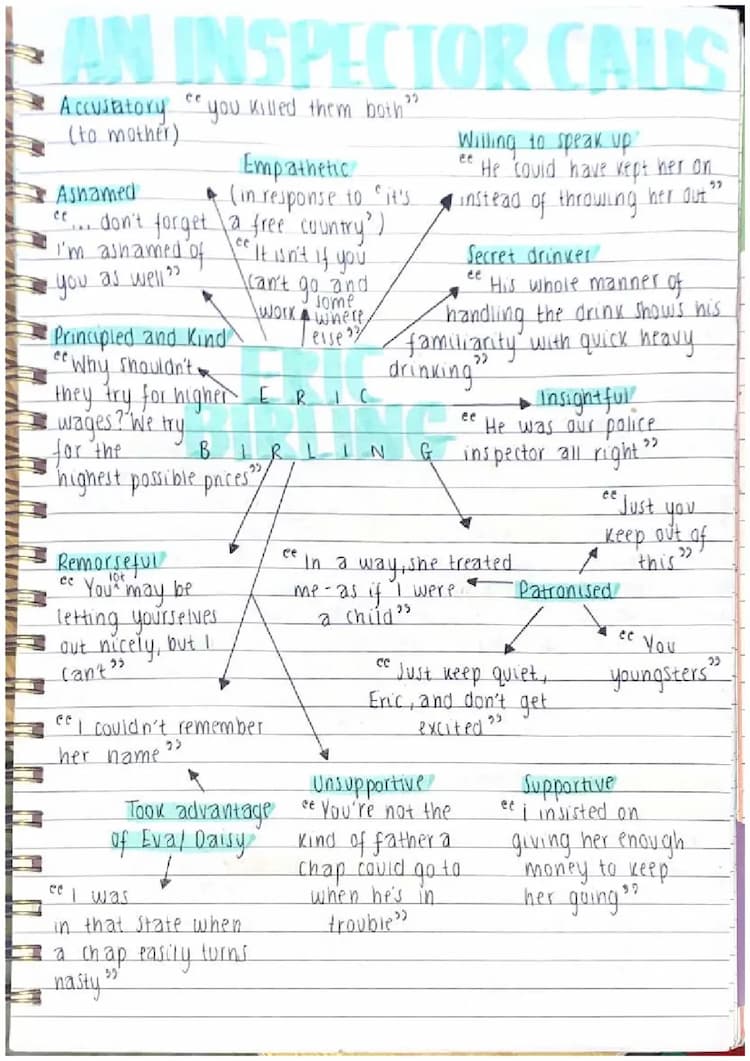 AN INSPECTOR CALLS
Accusatory “you killed them both”
(to mother)
Willing to speak up
“He could have kept her on
instead of throwing her out”
Empathetic
(in response to ‘it's
a free country’)
“It isn't if you
can't go and
work some
where
else”
Ashamed
“... don't forget
I'm ashamed of
you as well”
Secret drinker
“His whole manner of
handling the drink shows his
familiarity with quick heavy
drinking”
Principled and Kind
“Why shouldn't
they try for higher
wages? We try
for the
highest possible prices”
ERIC
BIRLING
E R I C
B I R L I N G
Insightful
“He was our police
inspector all right”
Remorseful
“You lot may be
letting yourselves
out nicely, but I
can't”
“In a way, she treated
me - as if I were
a child”
Patronised
“Just you
keep out of
this”
“You
youngsters”
“Just keep quiet,
Eric, and don't get
excited”
“I couldn't remember
her name”
Took advantage
of Eva/Daisy
“I was
in that state when
a chap easily turns
nasty”
Unsupportive
“You're not the
kind of father a
chap could go to
when he's in
trouble”
Supportive
“i insisted on
giving her enough
money to keep
her going”